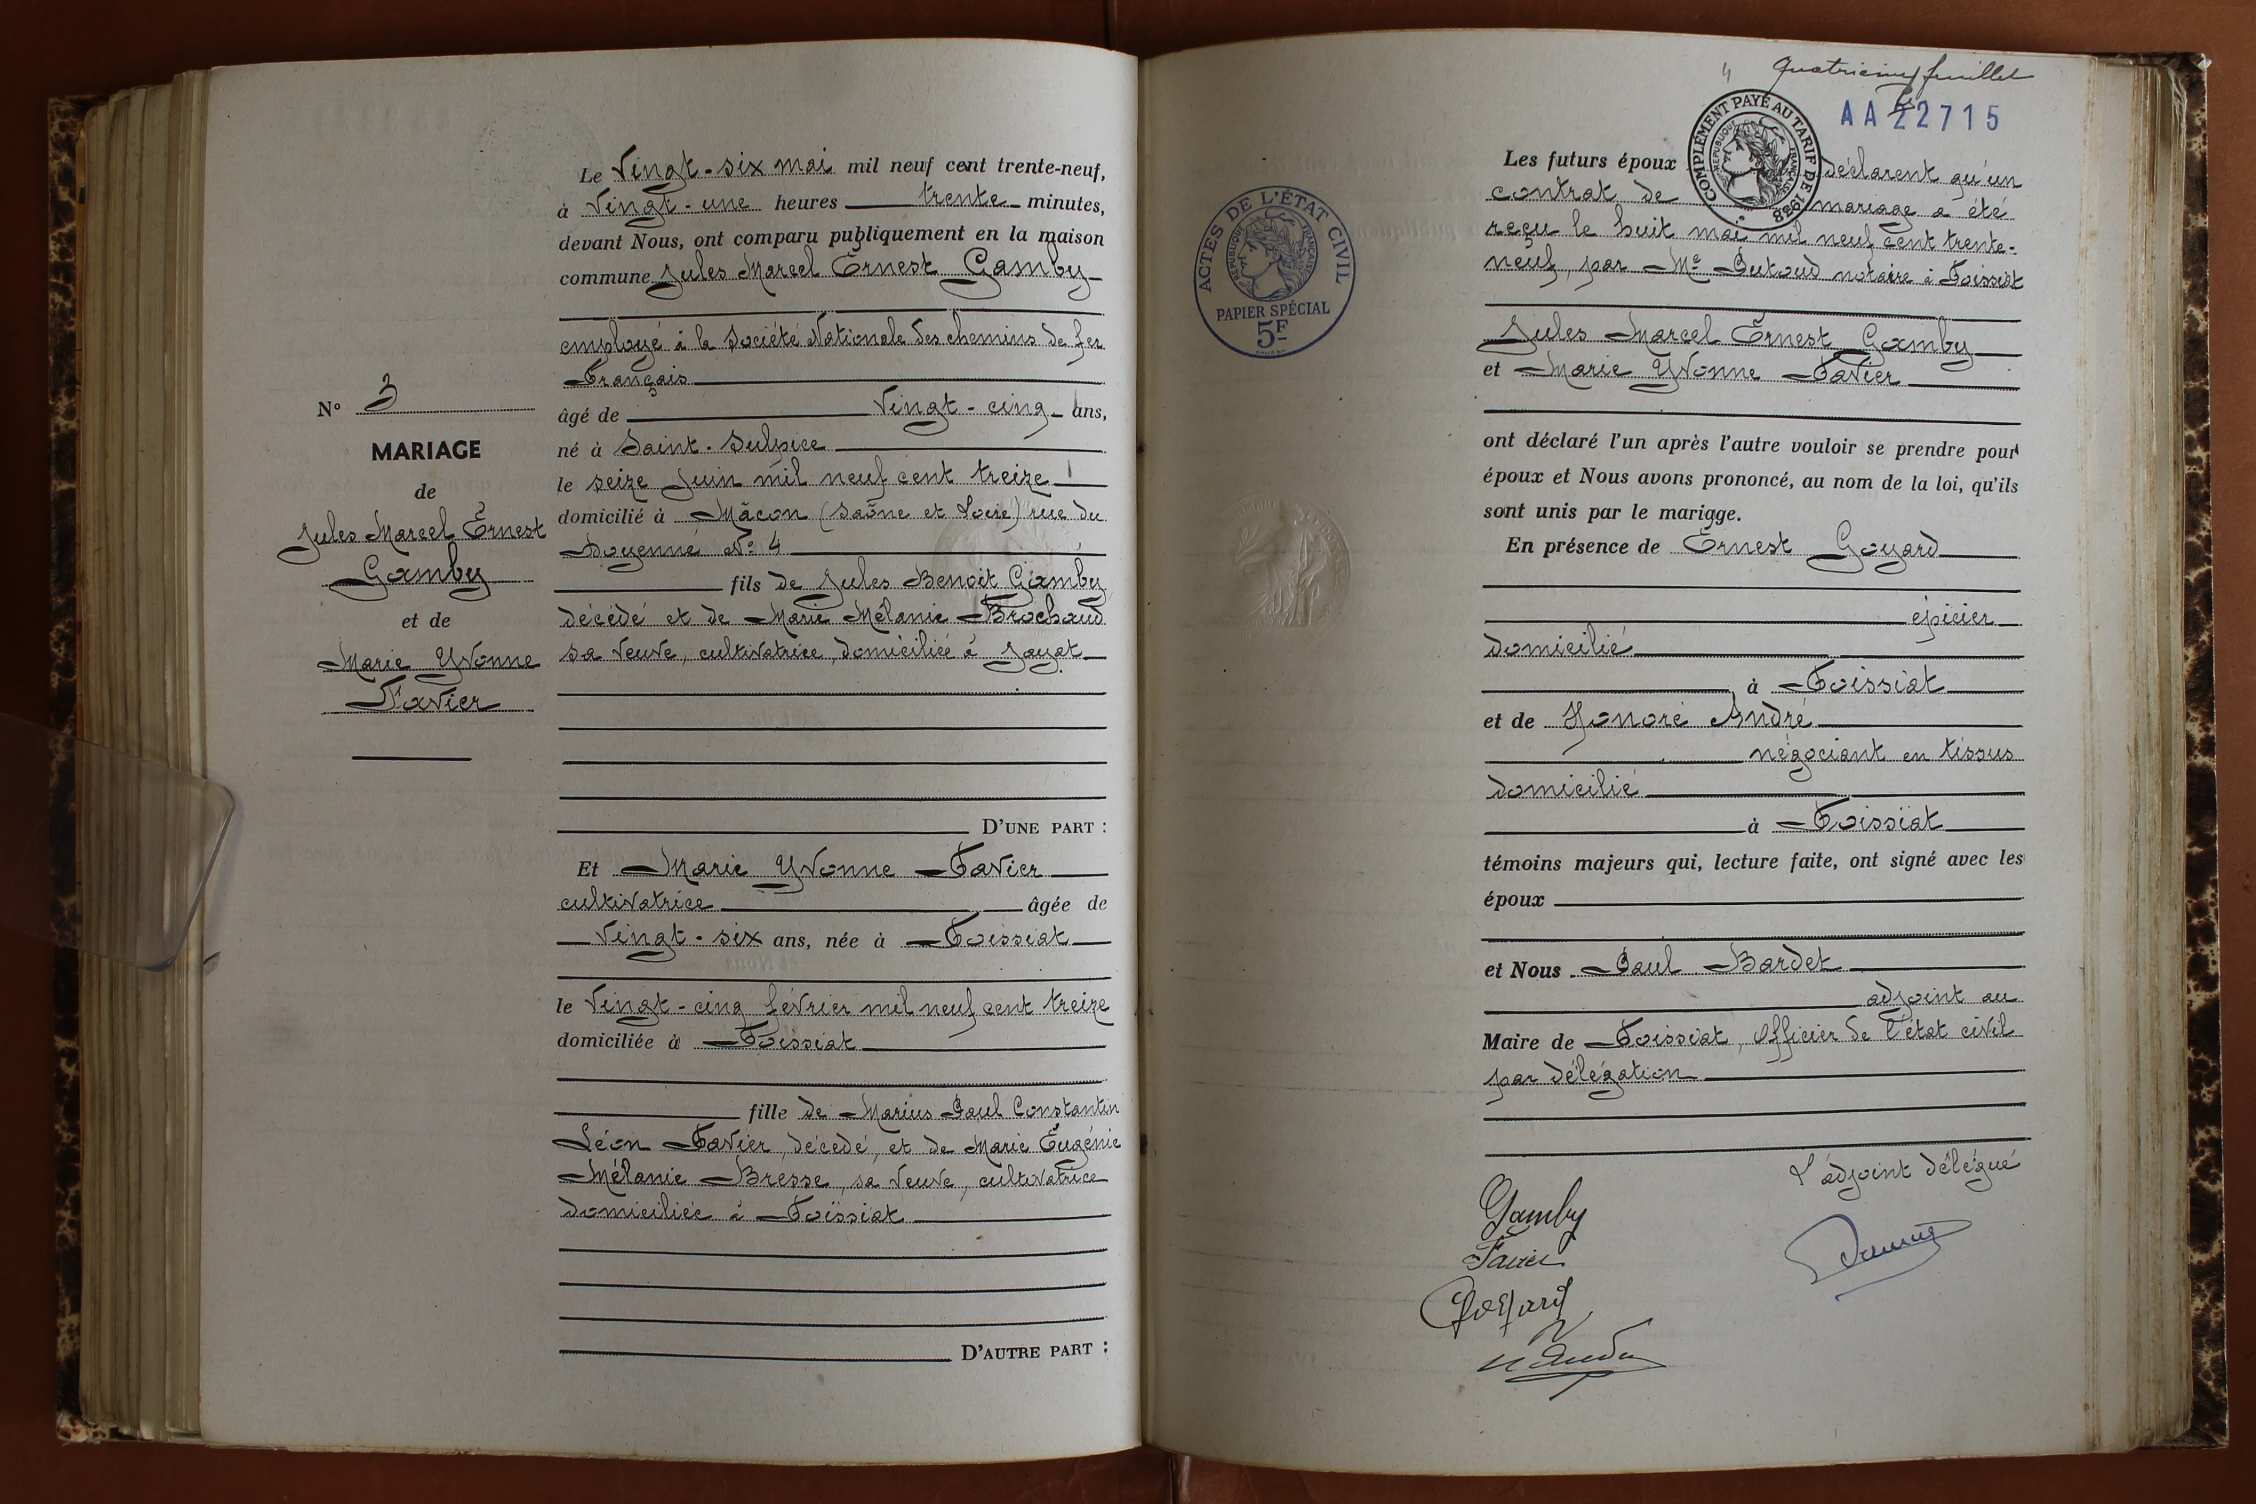 N° 3
MARIAGE
de
Jules Marcel Ernest
Gamby
et de
Marie Yvonne
Favier
Le Vingt-six mai mil neuf cent trente-neuf,
à Vingt-une heures trente minutes,
devant Nous, ont comparu publiquement en la maison
commune Jules Marcel Ernest Gamby
employé à la Société Nationale des chemins de fer
Français
âgé de Vingt-cinq ans,
né à Saint-Sulpice
le seize Juin mil neuf cent treize
domicilié à Mâcon (Saône et Loire) rue du
Doyenné N° 4
fils de Jules Benoit Gamby
décédé et de Marie Mélanie Brochaud
sa veuve, cultivatrice, domiciliée à Jayat
D'UNE PART :
Et Marie Yvonne Favier
cultivatrice âgée de
Vingt-six ans, née à Foissiat
le Vingt-cinq février mil neuf cent treize
domiciliée à Foissiat
fille de Marius Paul Constantin
Léon Favier, décédé, et de Marie Eugénie
Mélanie Bresse, sa veuve, cultivatrice
domiciliée à Foissiat
D'AUTRE PART :
4 quatrième feuillet
AA 22715
COMPLÉMENT PAYÉ AU TARIF DE 1938
RÉPUBLIQUE FRANÇAISE
ACTES DE L'ÉTAT CIVIL
RÉPUBLIQUE FRANÇAISE
PAPIER SPÉCIAL
5F
Les futurs époux déclarent qu'un
contrat de mariage a été
reçu le huit mai mil neuf cent trente-
neuf, par Me notaire à Foissiat
Jules Marcel Ernest Gamby
et Marie Yvonne Favier
ont déclaré l'un après l'autre vouloir se prendre pour
époux et Nous avons prononcé, au nom de la loi, qu'ils
sont unis par le mariage.
En présence de Ernest Goyard
épicier
domicilié
à Foissiat
et de Honoré André
négociant en tissus
domicilié
à Foissiat
témoins majeurs qui, lecture faite, ont signé avec les
époux
et Nous Paul Bardet
adjoint au
Maire de Foissiat, Officier de l'état civil
par délégation
L'adjoint délégué
Gamby
Favier
Goyard